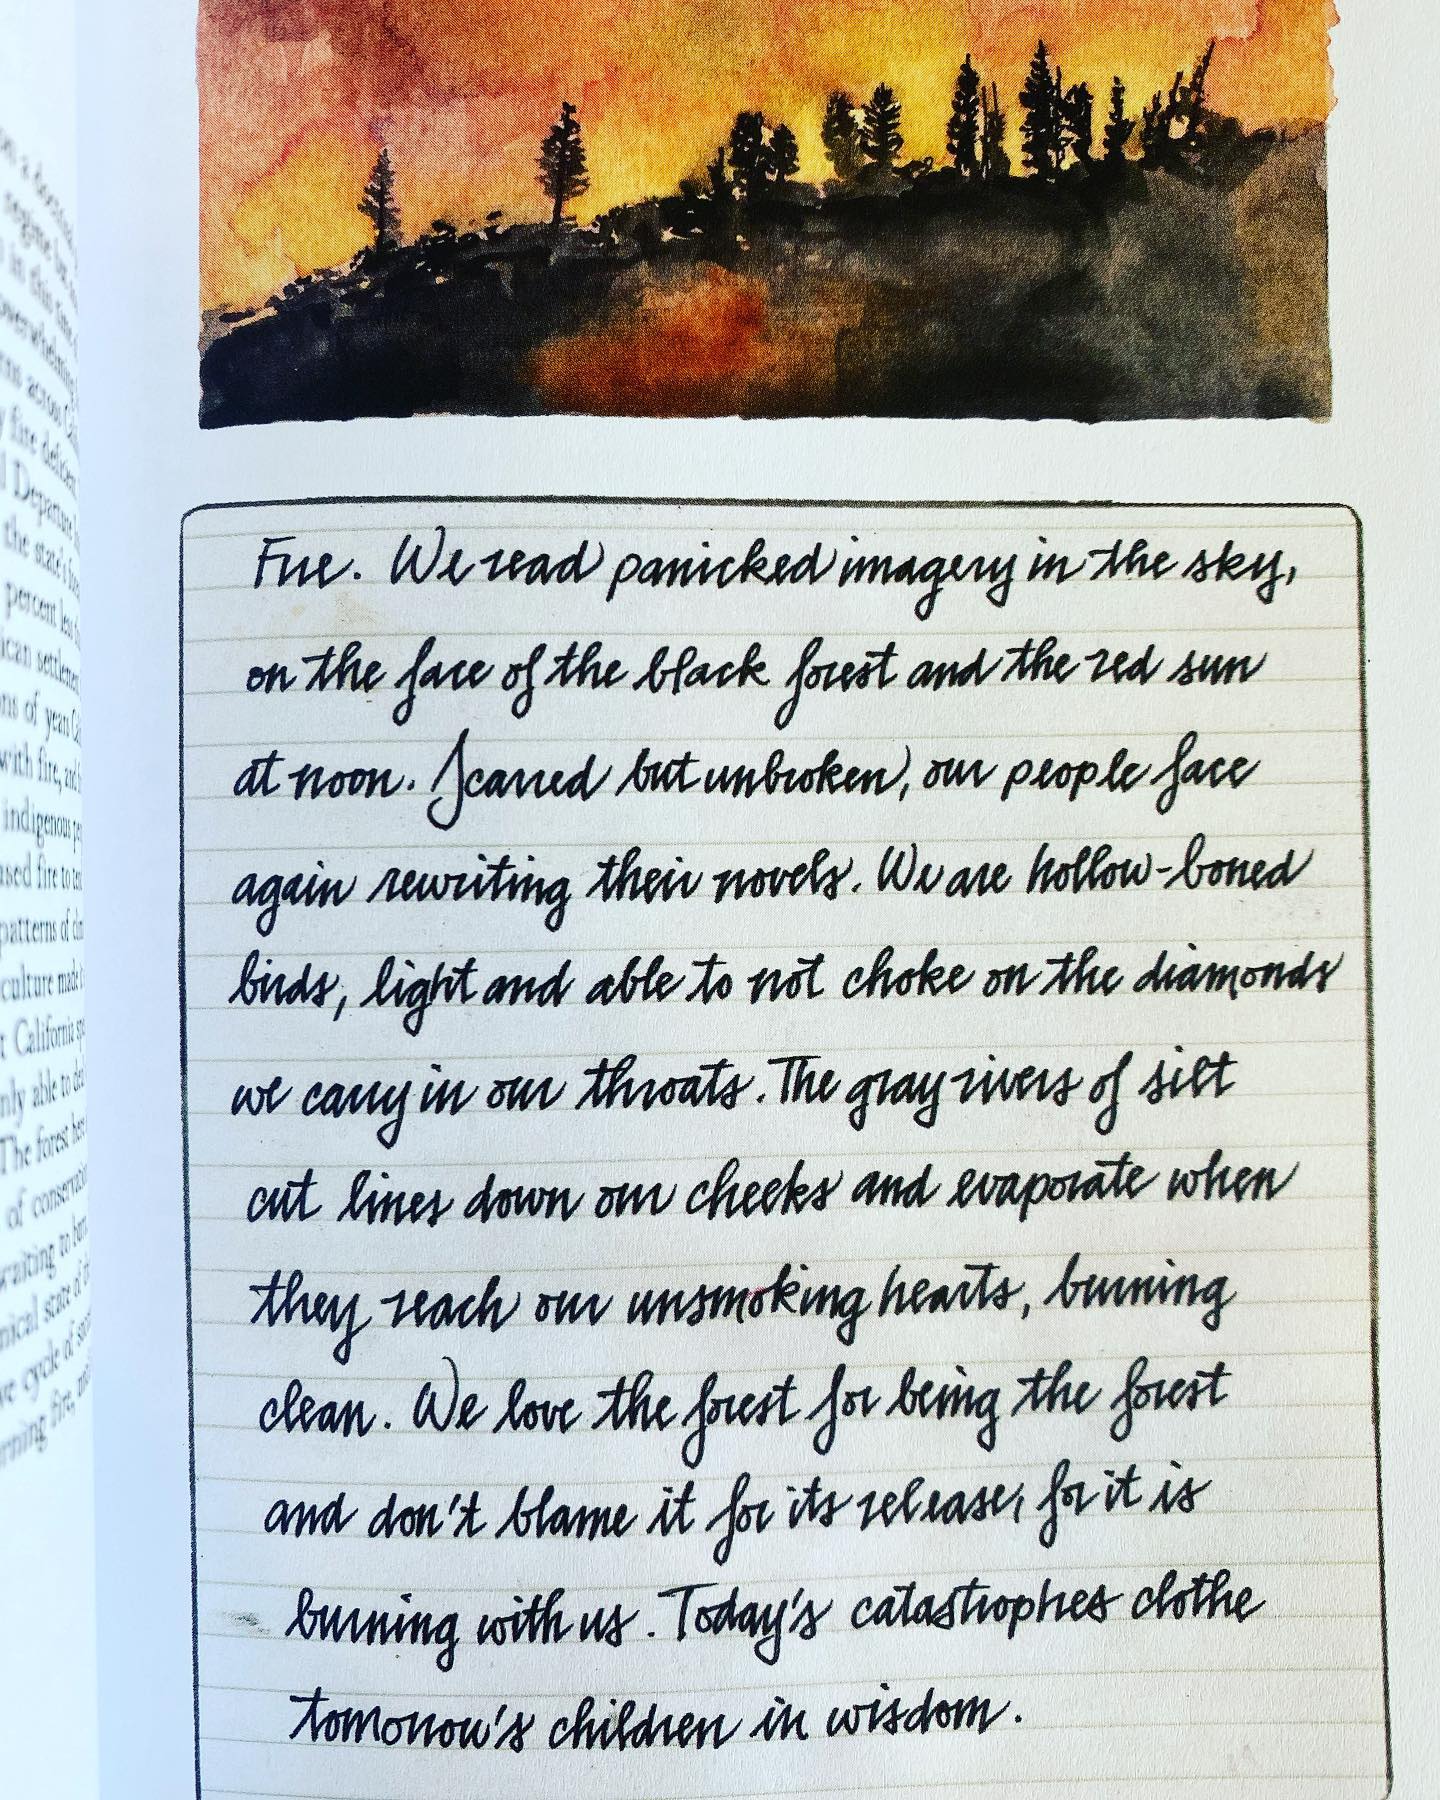 Fire. We read panicked imagery in the sky,
on the face of the black forest and the red sun
at noon. Scarred but unbroken, our people face
again rewriting their novels. We are hollow-boned
birds, light and able to not choke on the diamonds
we carry in our throats. The gray rivers of silt
cut lines down our cheeks and evaporate when
they reach our unsmoking hearts, burning
clean. We love the forest for being the forest
and don't blame it for its release, for it is
burning with us. Today's catastrophes clothe
tomorrow's children in wisdom.